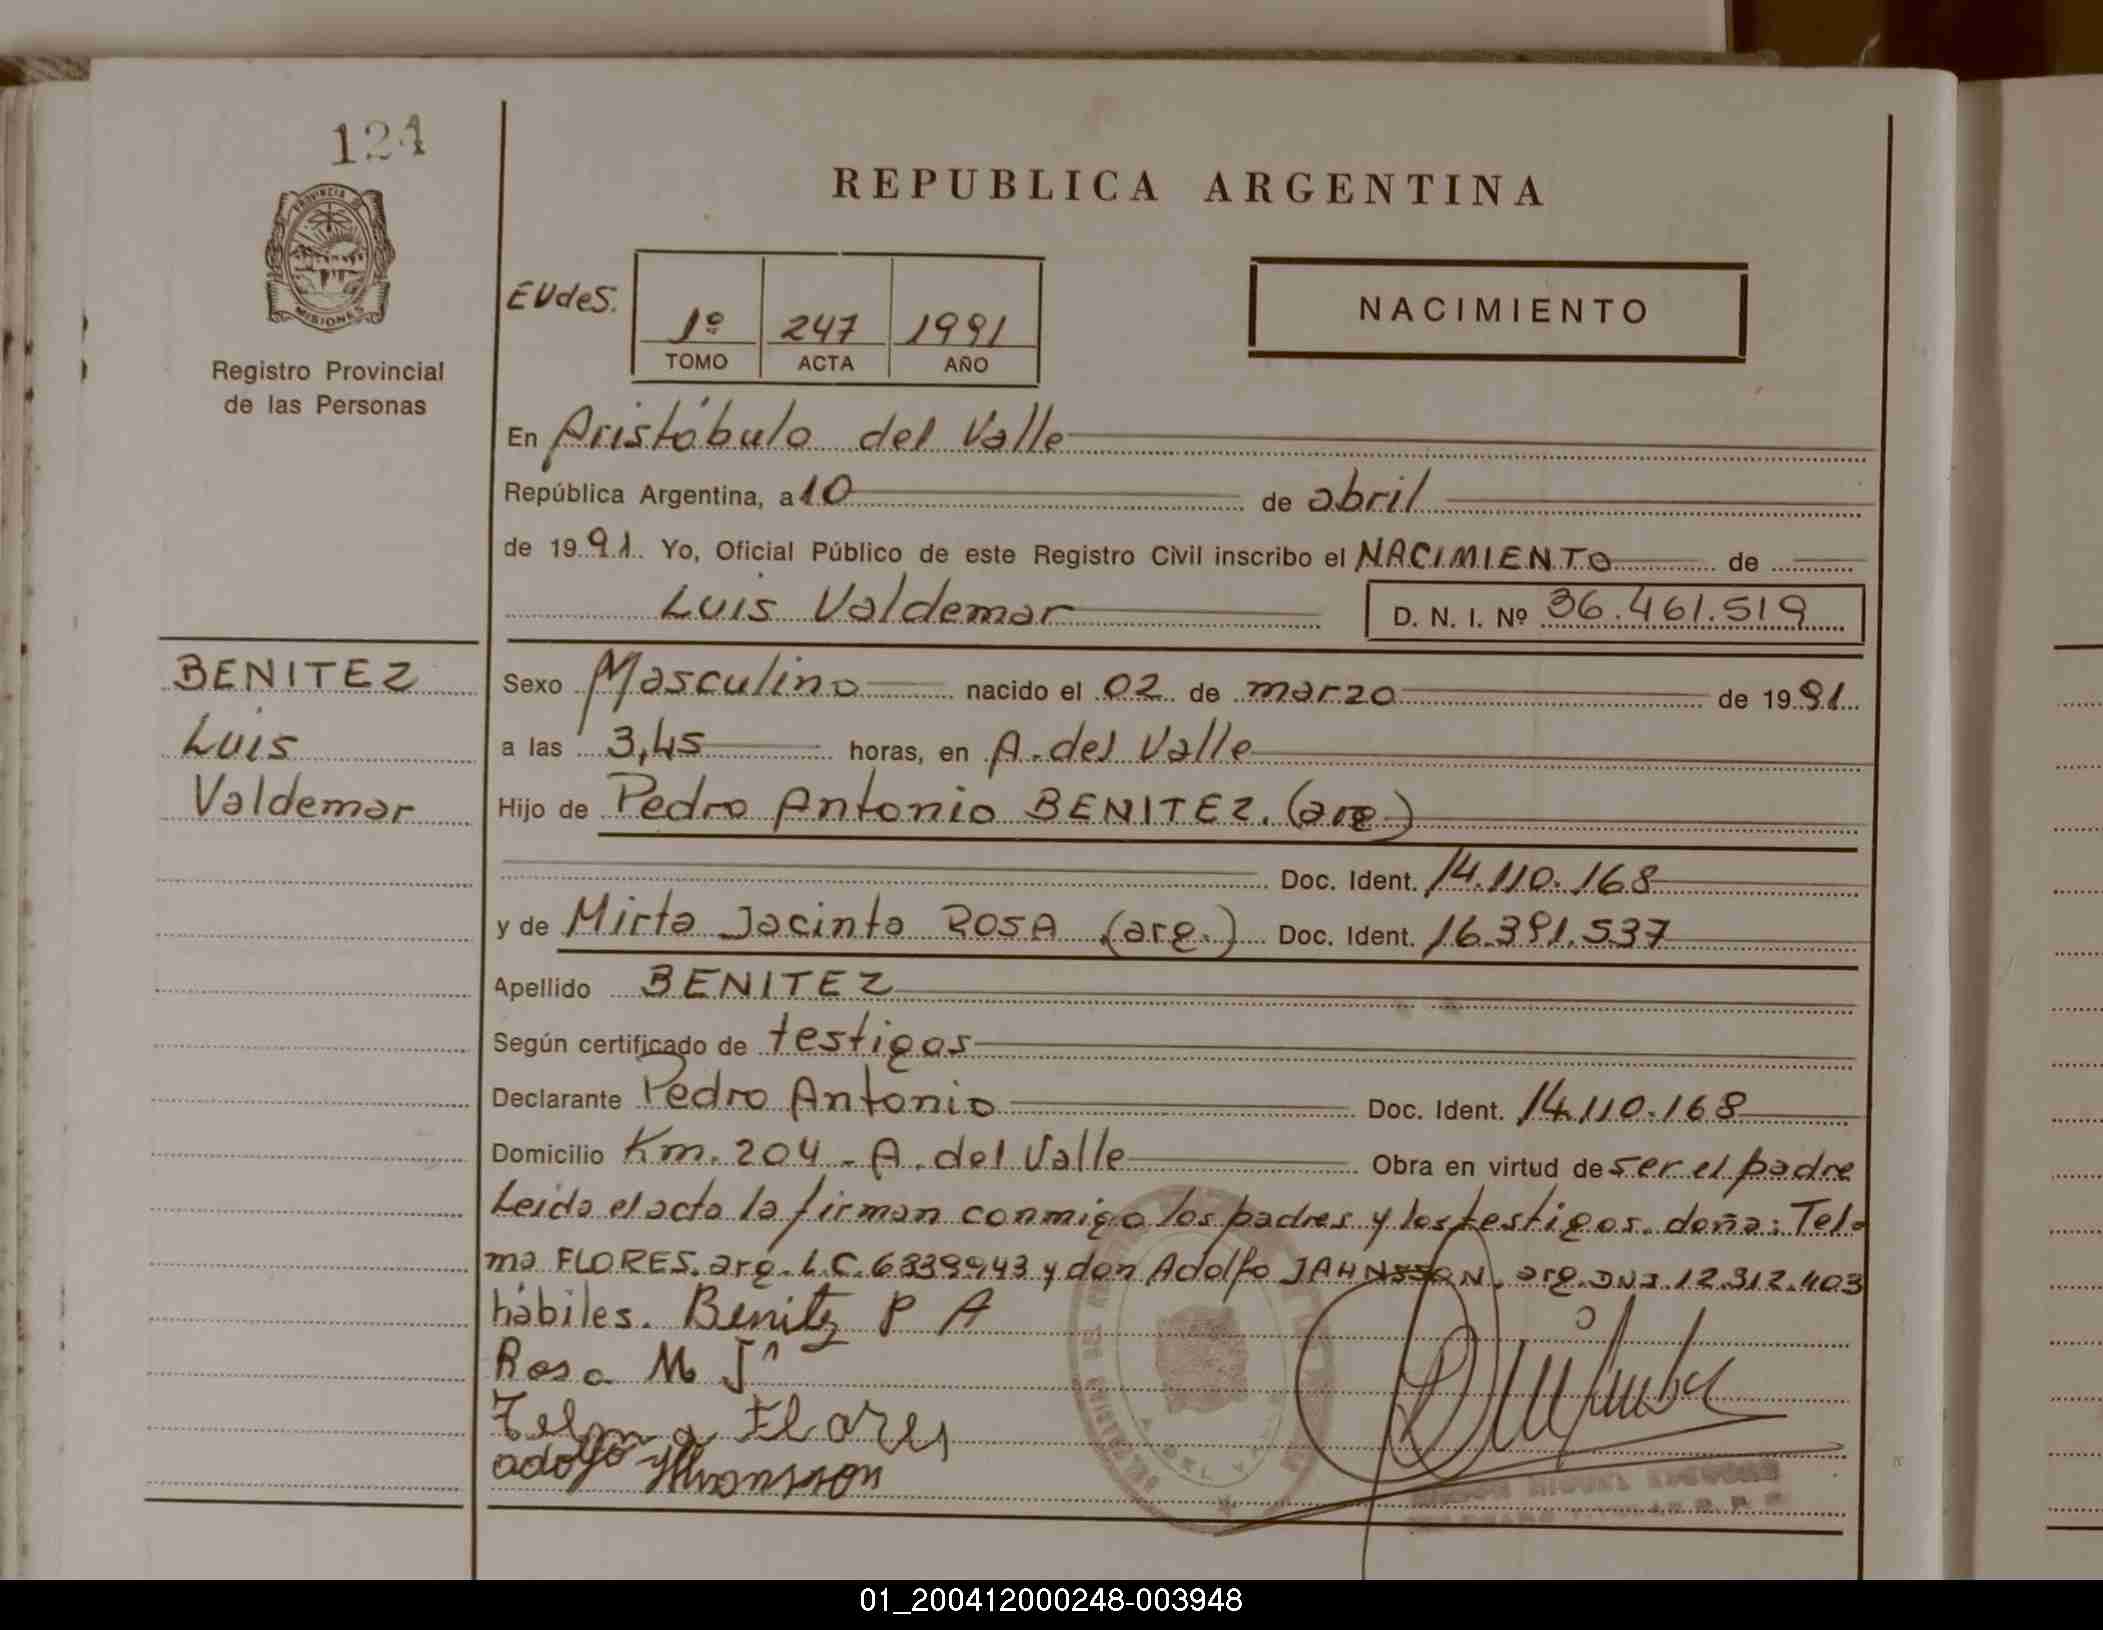 124
PROVINCIA DE
MISIONES
Registro Provincial
de las Personas
REPUBLICA ARGENTINA
EUdeS.
1º 247 1991
TOMO ACTA AÑO
NACIMIENTO
En Aristóbulo del Valle
República Argentina, a 10 de abril
de 1991. Yo, Oficial Público de este Registro Civil inscribo el NACIMIENTO de
Luis Valdemar D. N. I. Nº 36.461.519
BENITEZ
Luis
Valdemar
Sexo Masculino nacido el 02 de marzo de 1991
a las 3,45 horas, en A. del Valle
Hijo de Pedro Antonio BENITEZ. (arg)
Doc. Ident. 14.110.168
y de Mirta Jacinta ROSA (arg.) Doc. Ident. 16.391.537
Apellido BENITEZ
Según certificado de testigos
Declarante Pedro Antonio Doc. Ident. 14.110.168
Domicilio Km. 204 - A. del Valle Obra en virtud de ser el padre
Leida el acta la firman conmigo los padres y los testigos. doña: Tel-
ma FLORES. arg. L.C. 6339943 y don Adolfo JAHNSSON. arg. DNI. 12.312.403
hábiles. Benitz P A
Rosa M Jª
Telma Flores
adolfo
01_200412000248-003948